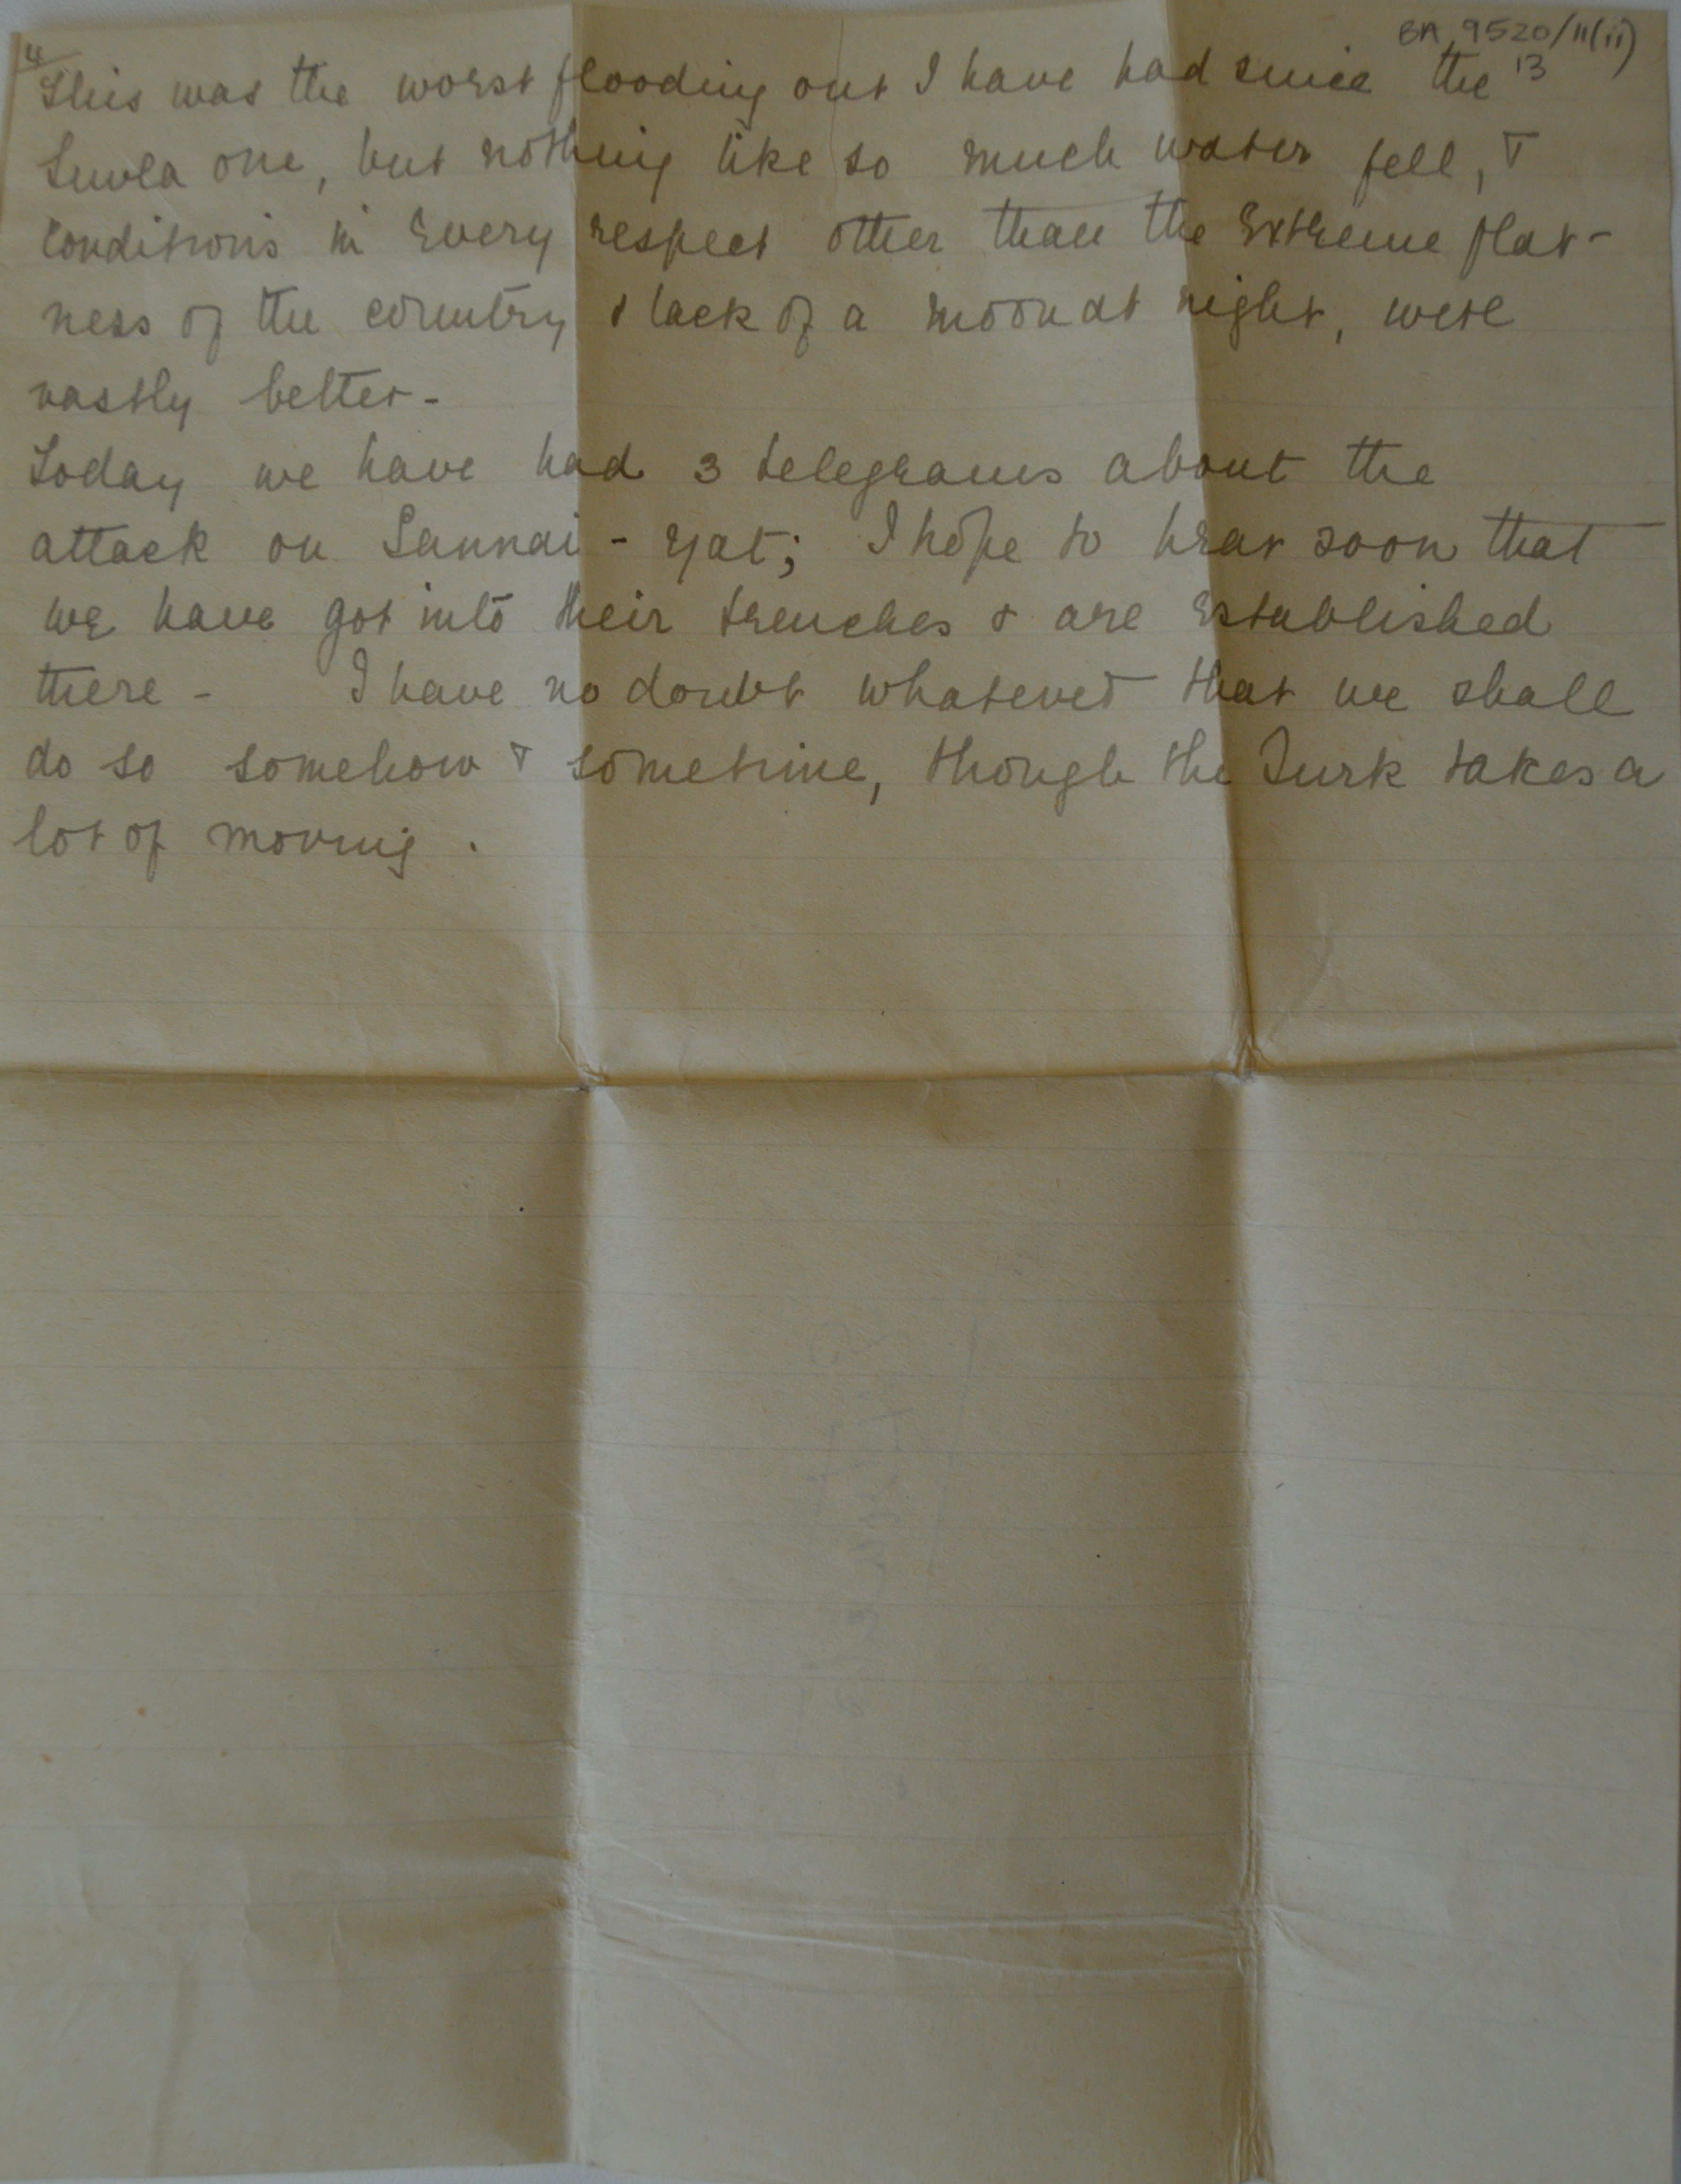 4
BA 9520/11(ii)
13
This was the worst flooding out I have had since the
Suvla one, but nothing like so much water fell, &
conditions in every respect other than the extreme flat-
ness of the country & lack of a moon at night, were
vastly better -
Today we have had 3 telegrams about the
attack on Sannai - yat; I hope to hear soon that
we have got into their trenches & are established
there - I have no doubt whatever that we shall
do so somehow & sometime, though the Turk takes a
lot of moving.